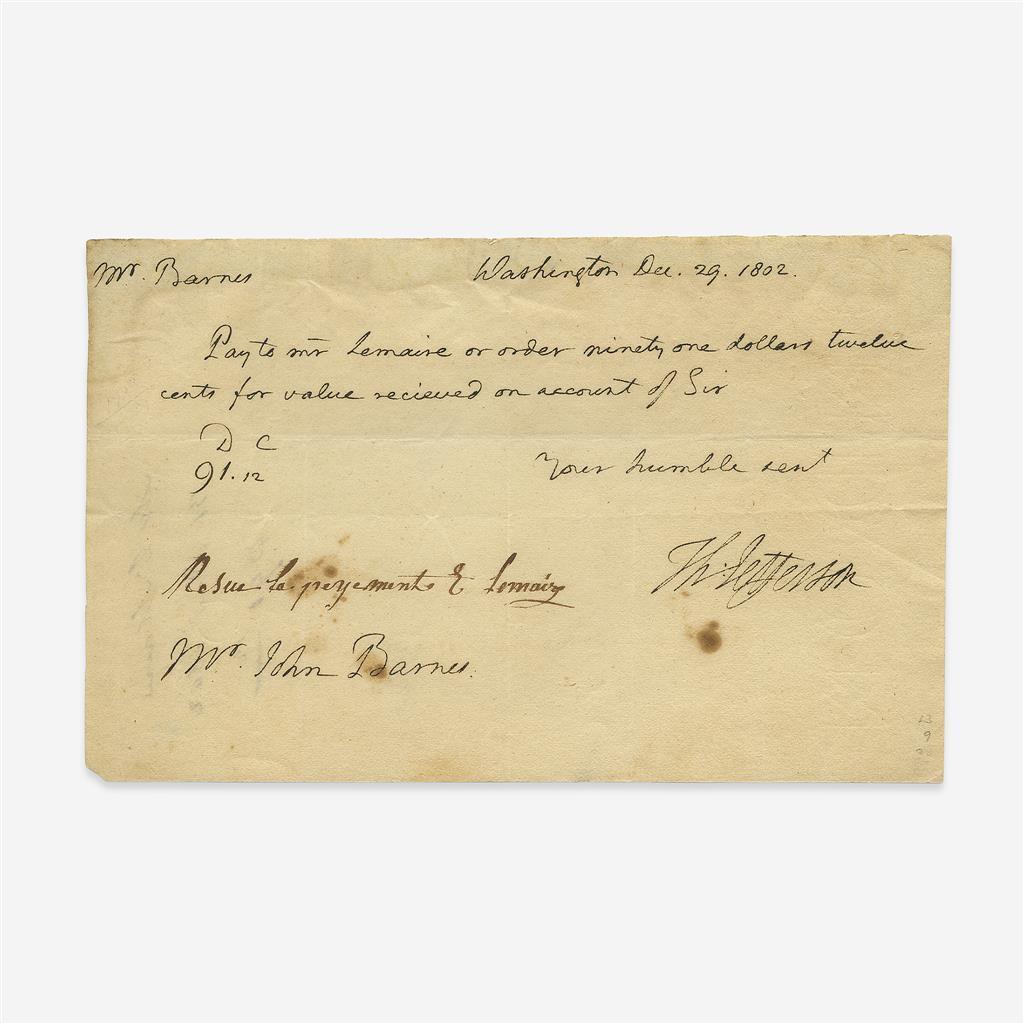 Mr. Barnes Washington Dec. 29. 1802.
Pay to mr Lemaire or order ninety one dollars twelve
cents for value recieved on account of Sir
D C
91.12
Your humble servt
Th: Jefferson
Resue le peyement E Lemair
Mr. John Barnes.